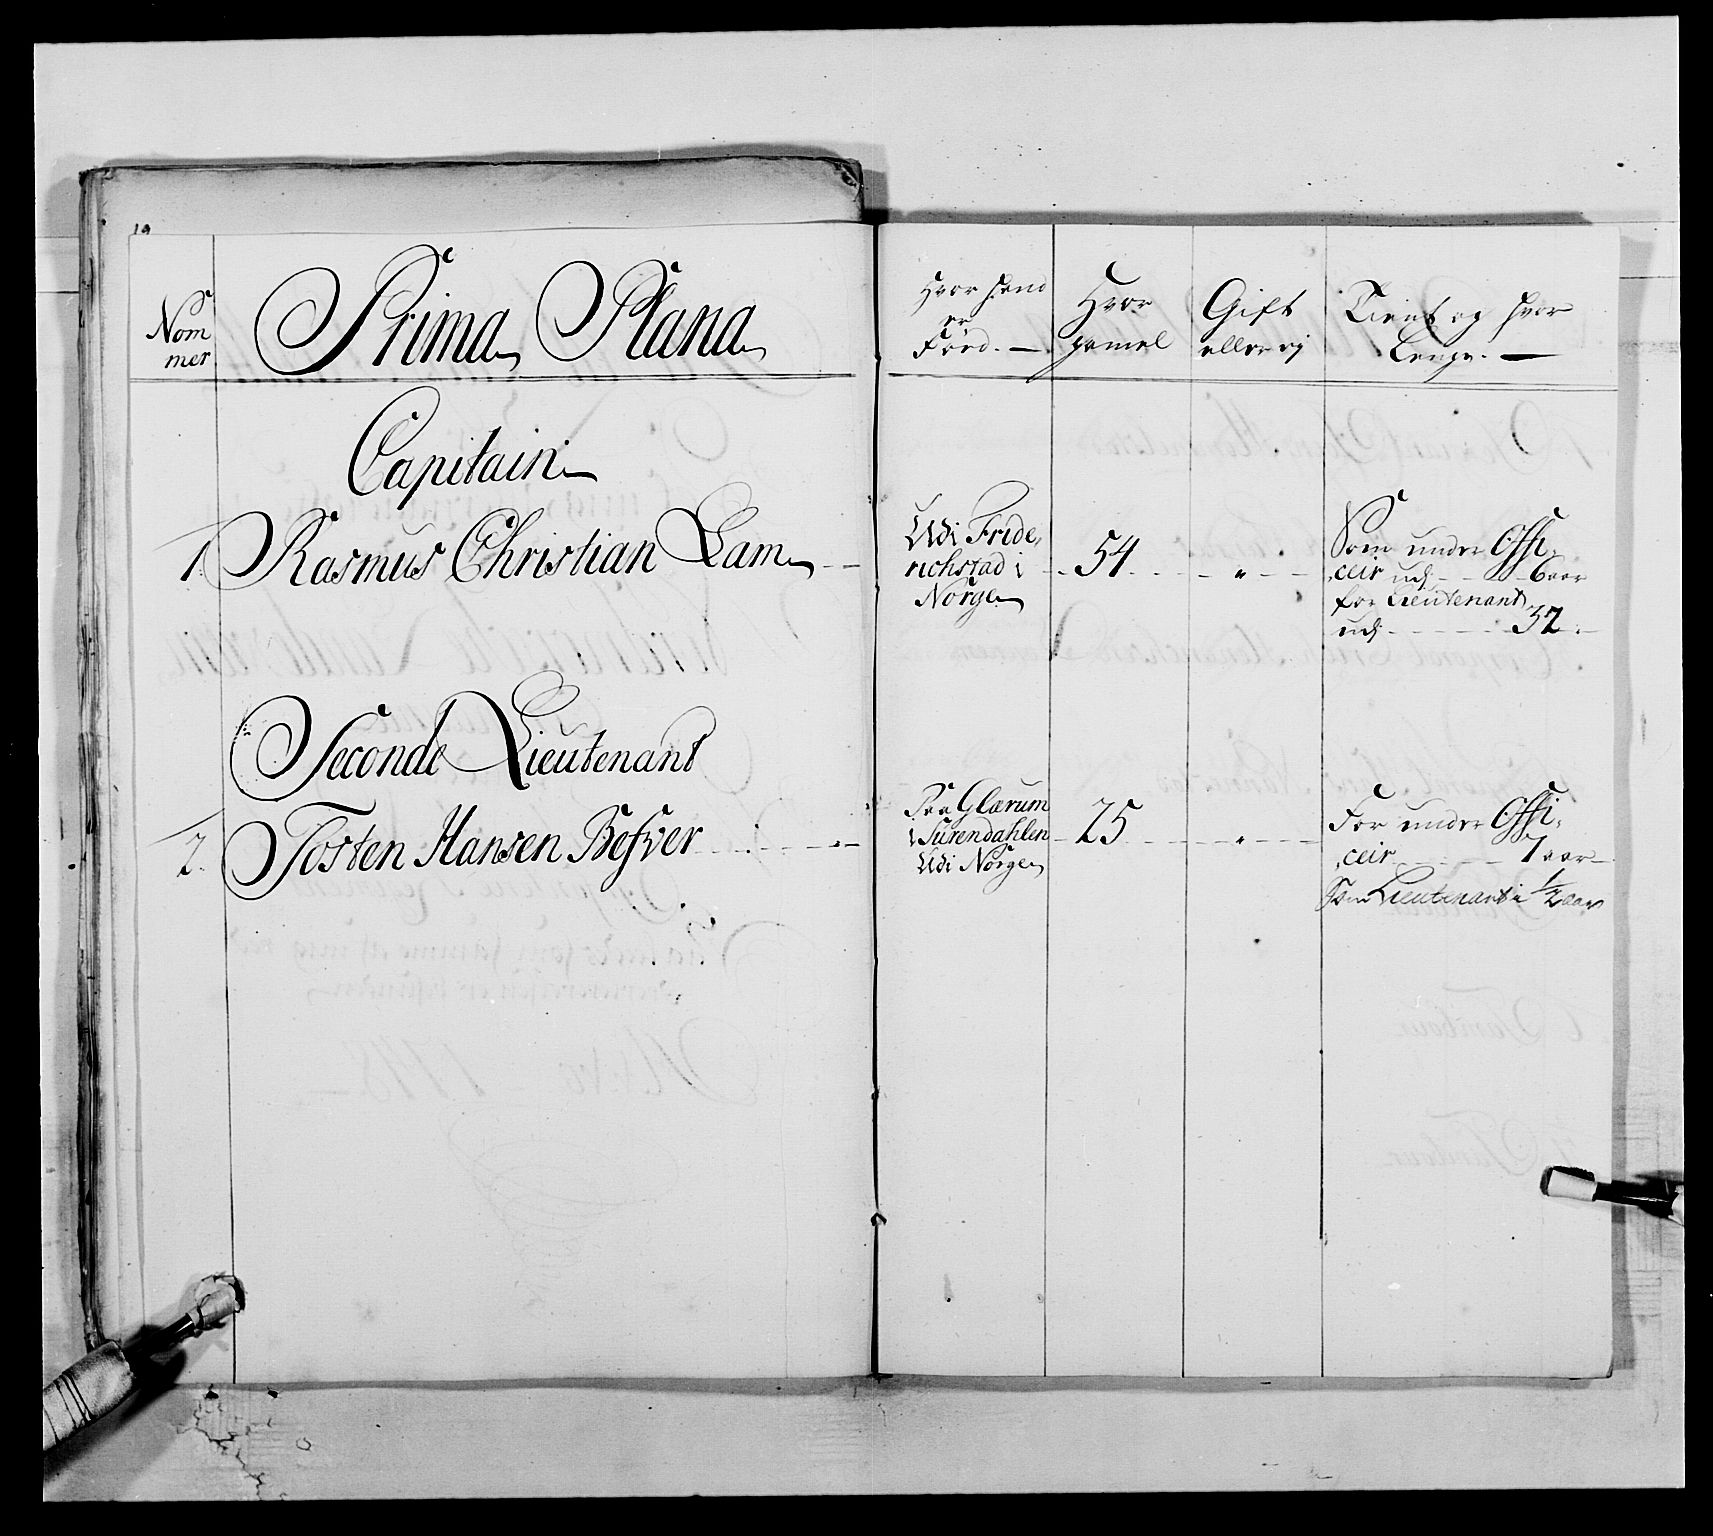 19
Nom
mer
Prima Plana
Hvor Hand
er
Föed.
Hvor
gamel
Gift
eller ej
Tient og hvor
Lenge.
Capitain
1. Rasmus Christian Lam
Udi Fride,
richstad i
Norge
54
"
Som under Offi,
,ceir udj 6 aar
for Lieutenant
udj 32
Seconde Lieutenant
2. Tosten Hansen Besver
Paa Glærum
i Surendahlen
Udi Norge
25
"
For under Offi,
,ceir 7 aar
Som Lieutenant i 1/2 aar